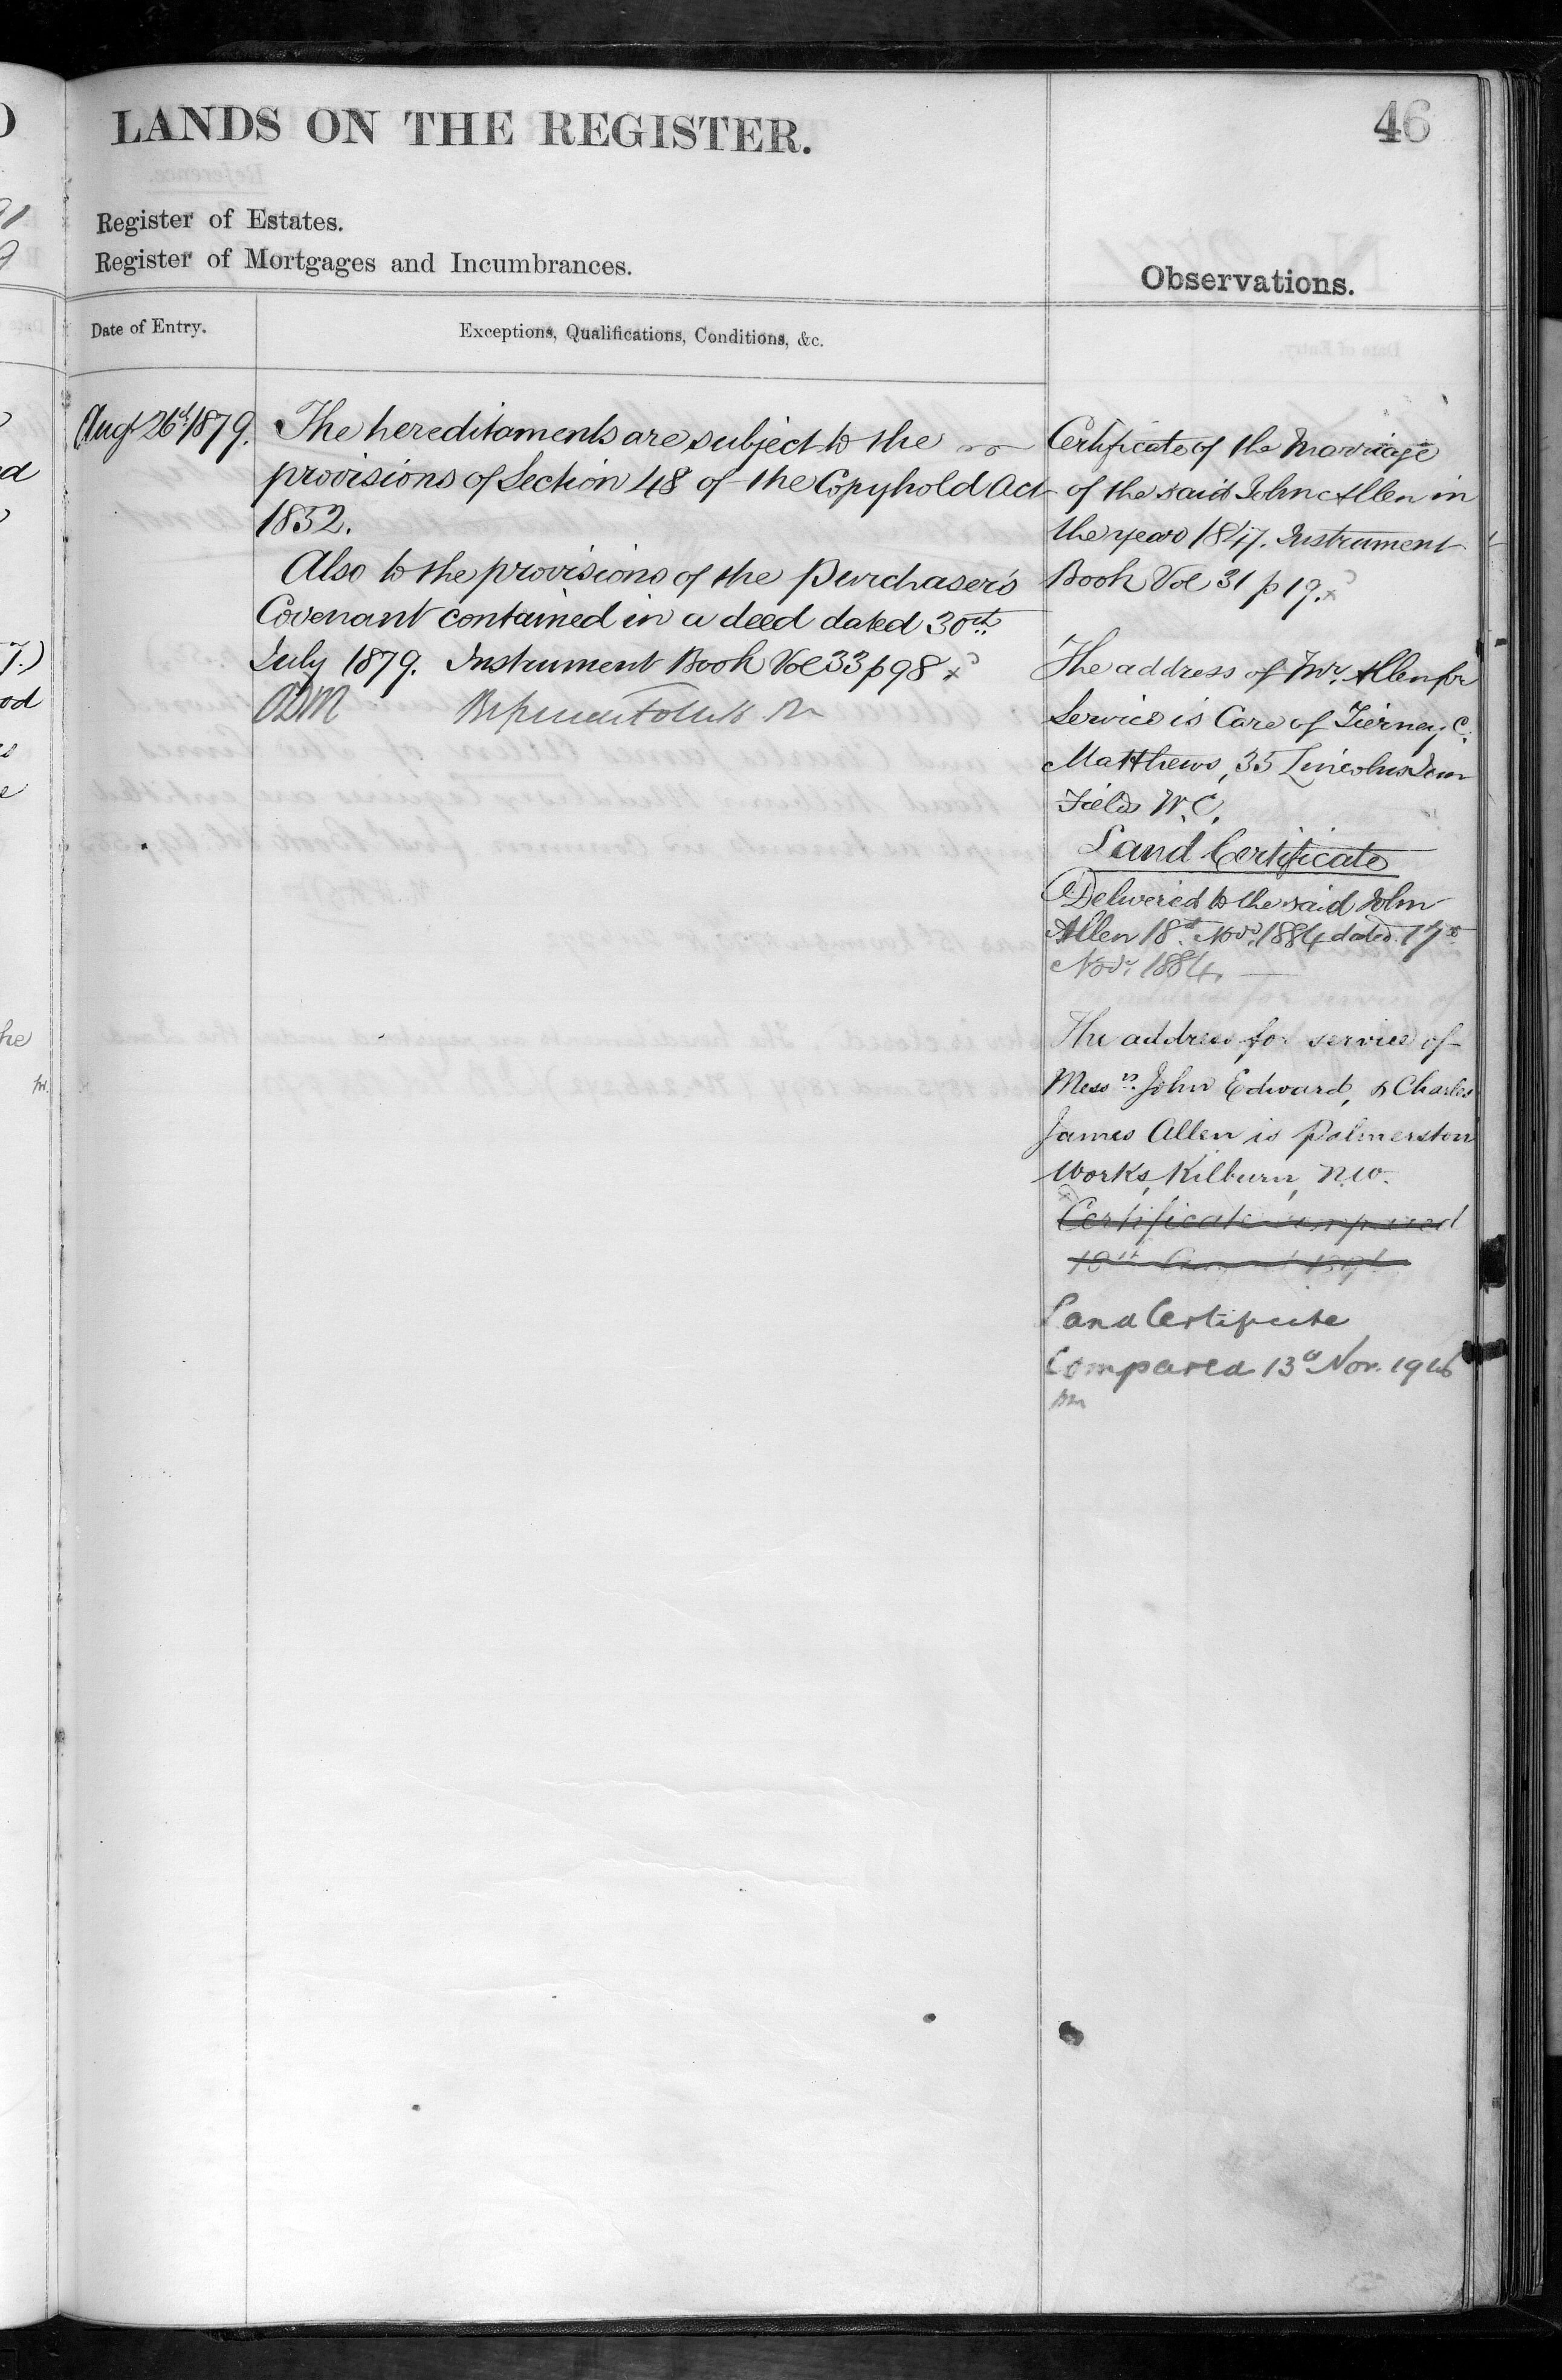 LANDS ON THE REGISTER.
46
Register of Estates.
Register of Mortgages and Incumbrances.
Observations.
Date of Entry.
Exceptions, Qualifications, Conditions, &c.
Augt 26th 1879.
The hereditaments are subject to the
provisions of Section 48 of the Copyhold Act
1852.
Also to the provisions of the Purchaser's
Covenant contained in a deed dated 30th
July 1879. Instrument Book Vol 33 p 98 x
Certificate of the Marriage
of the said John Allen in
the year 1847. Instrument
Book Vol 31 p 19. x
The address of Mr. Allen for
Service is Care of Tierney C.
Matthews, 35 Lincolns Inn
Fields W.C.
Land Certificate
Delivered to the said John
Allen 18th Novr. 1884 dated 17th
Novr. 1884.
The address for service of
Messrs. John Edward, & Charles
James Allen is Palmerston
Works, Kilburn, N.W.
Certificate compared
Land Certificate
Compared 13th Nov. 1916